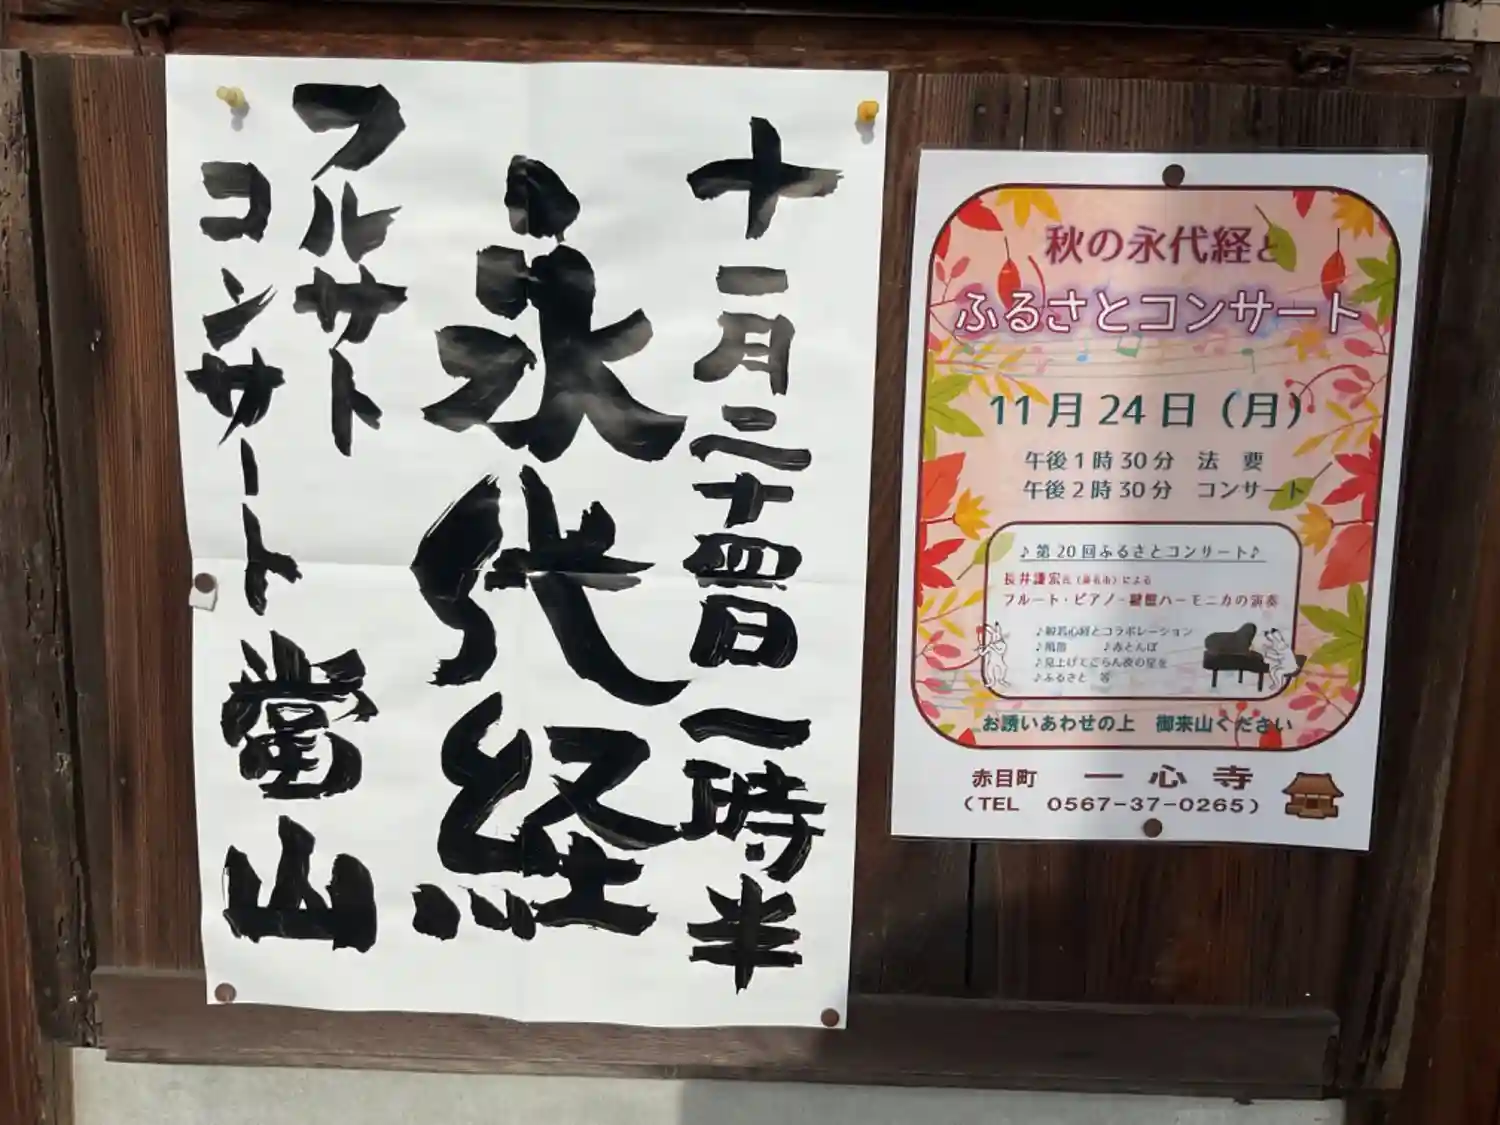 十一月二十四日一時半
永代経
フルサト
コンサート 當山
秋の永代経と
ふるさとコンサート
11月24日（月）
午後1時30分 法 要
午後2時30分 コンサート
♪第20回ふるさとコンサート♪
長井謙宏氏（桑名市）による
フルート・ピアノ・鍵盤ハーモニカの演奏
♪般若心経とコラボレーション
♪風笛 ♪赤とんぼ
♪見上げてごらん夜の星を
♪ふるさと 等
お誘いあわせの上 御来山ください
赤目町 一心寺
（TEL 0567-37-0265）